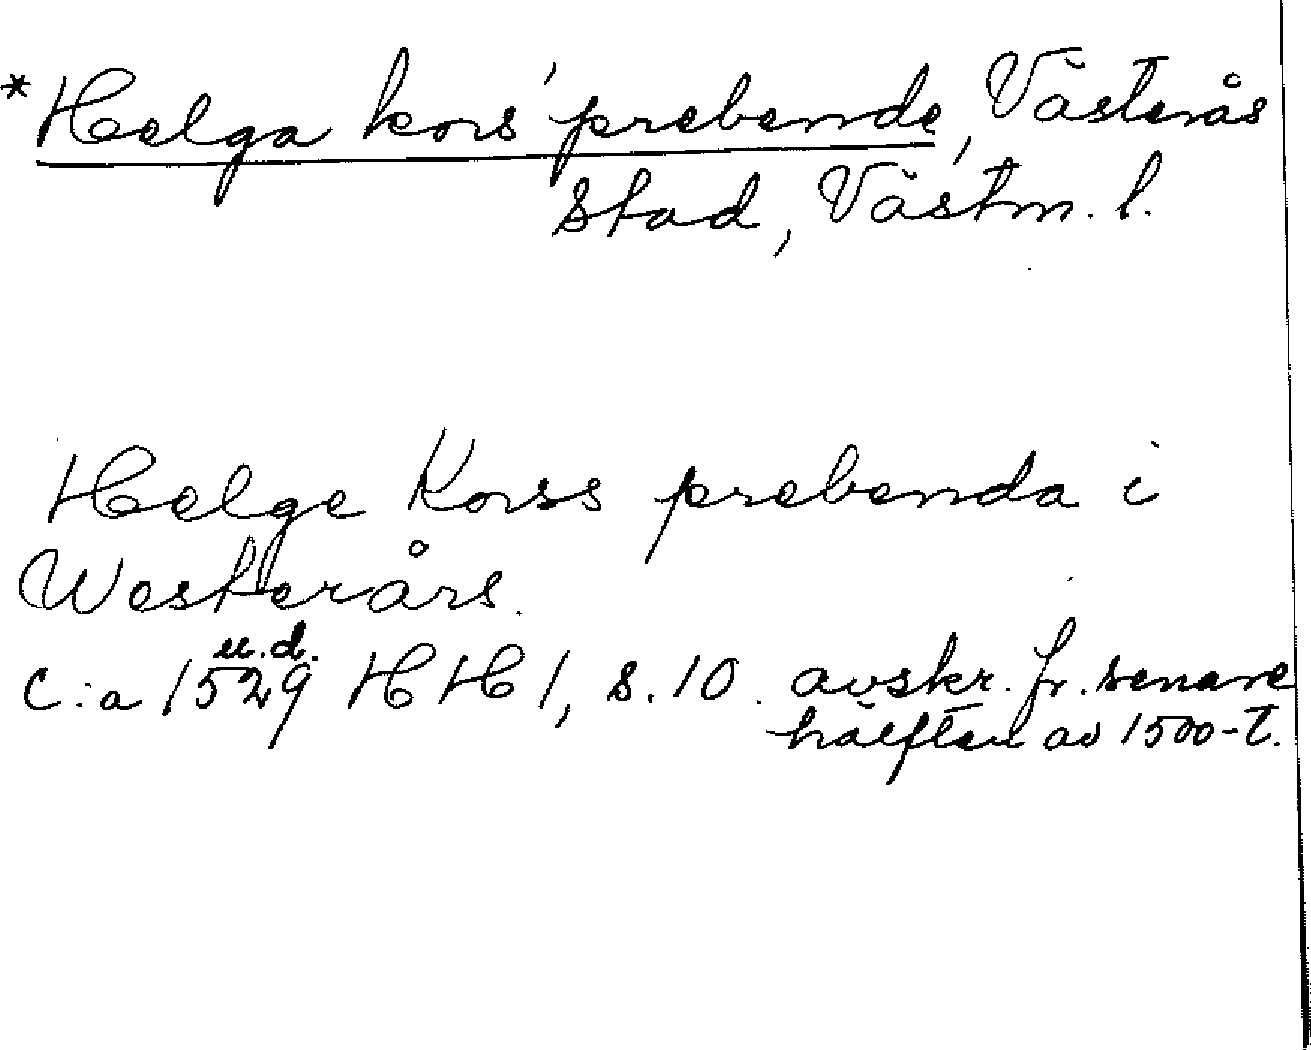 * Helga kors' prebende, Västerås
stad, Västm. l.
Helge Korss prebenda i
Westerårs.
u.d.
C:a 1529 HH 1, s. 10. avskr. fr. senare
hälften av 1500-t.